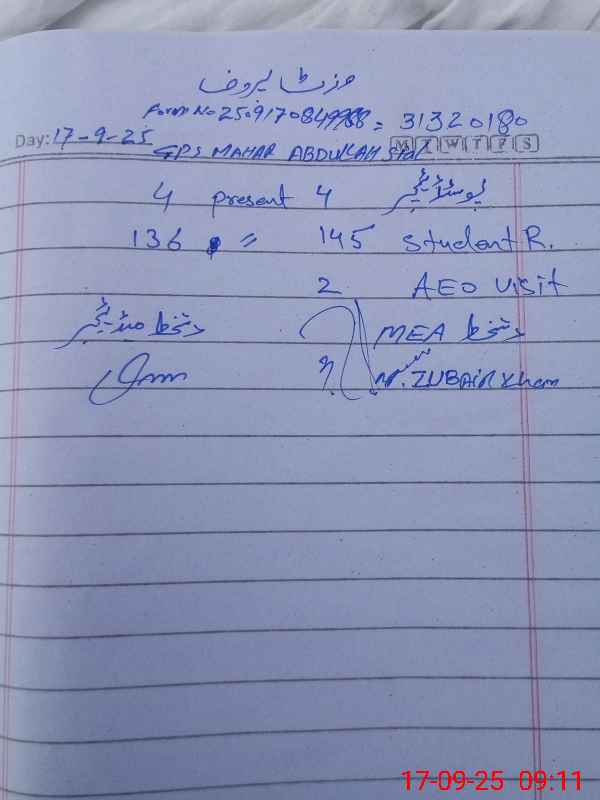 وزٹ پروف
Form No 25091708499 = 31320180
Day: 17-9-25
GPS MAHAR ABDULLAH M T W T F S
4 present 4 پوسٹ ٹیچر
136 〃 145 Student R.
2 AEO visit
دستخط ہیڈ ٹیچر دستخط MEA
M. ZUBAIR Khan
17-09-25 09:11